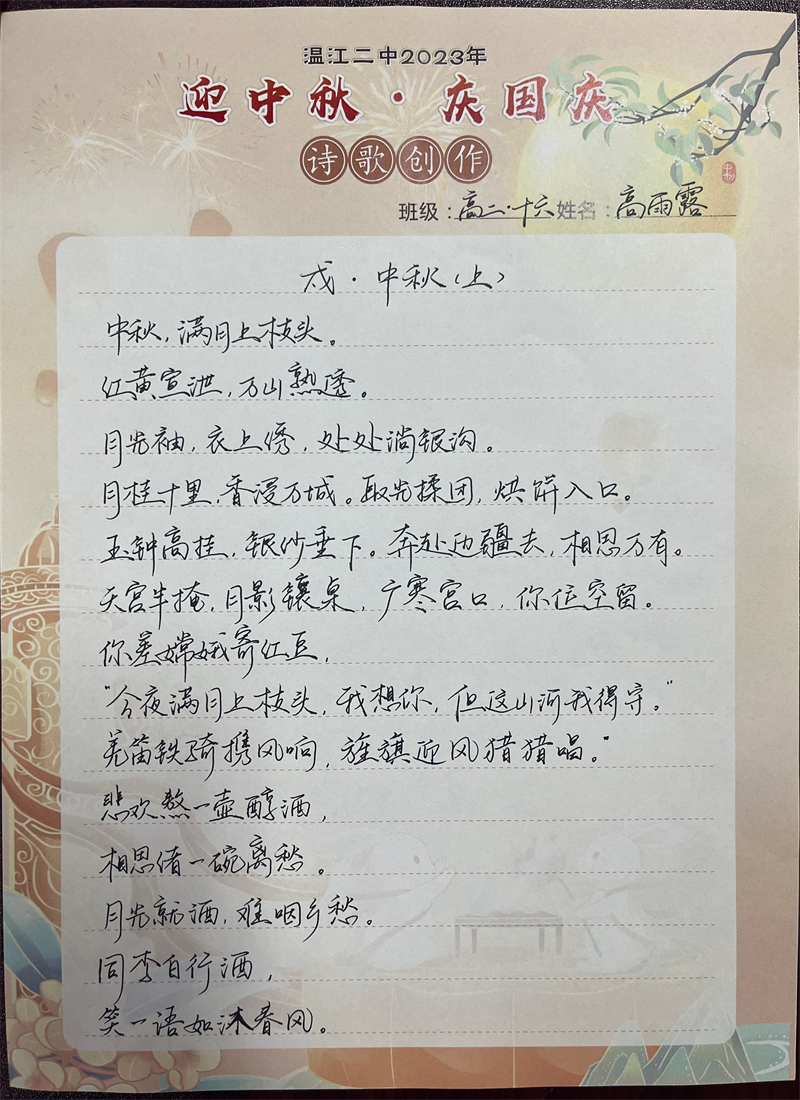 温江二中2023年
迎中秋·庆国庆
诗歌创作
班级：高二·十六 姓名：高雨露
戍·中秋（上）
中秋，满月上枝头。
红黄宣泄，万山熟透。
月光袖，衣上绣，处处淌银沟。
月桂十里，香漫万城。取光揉团，烘饼入口。
玉钟高挂，银纱垂下。奔赴边疆去，相思万有。
天宫半掩，月影镶桌，广寒宫口，你位空留。
你差嫦娥寄红豆，
“今夜满月上枝头，我想你，但这山河我得守。”
羌笛铁骑携风响，旌旗迎风猎猎唱。”
悲欢熬一壶醇酒，
相思借一碗离愁。
月光就酒，难咽乡愁。
同李白行酒，
笑一语如沐春风。